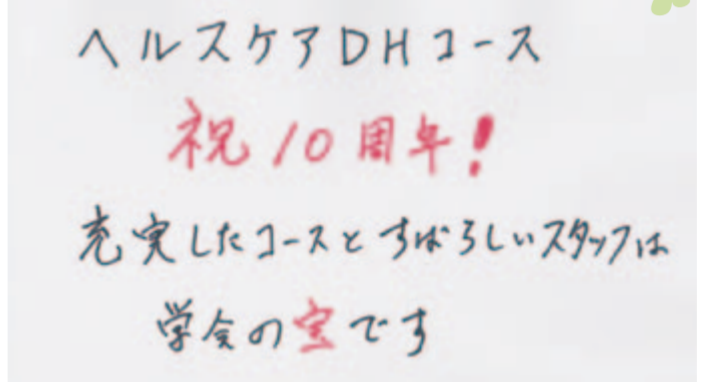 ヘルスケアDHコース
祝10周年!
充実したコースとすばらしいスタッフは
学会の宝です